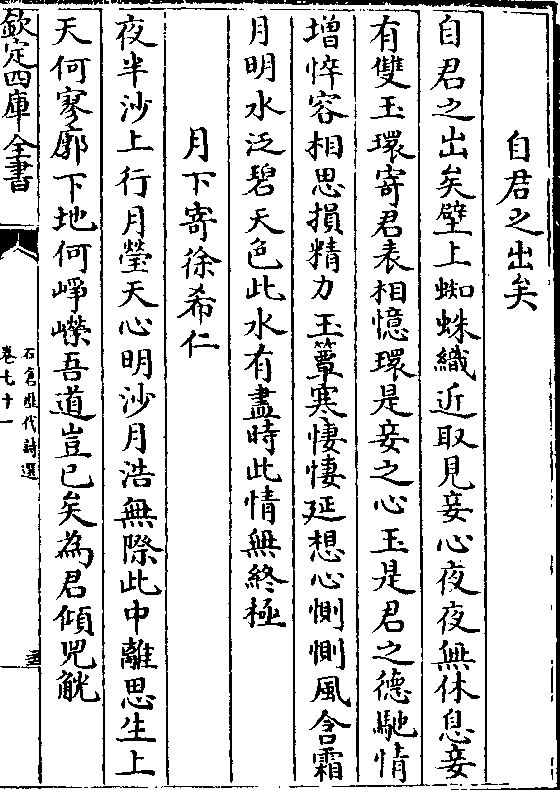 自君之出矣
自君之出矣壁上蜘蛛織近取見妾心夜夜無休息妾
有雙玉環寄君表相憶環是妾之心玉是君之德馳情
增悴容相思損精力玉簟寒悽悽延想心惻惻風含霜
月明水泛碧天色此水有盡時此情無終極
月下寄徐希仁
夜半沙上行月瑩天心明沙月浩無際此中離思生上
天何寥廓下地何崢嶸吾道豈已矣為君傾兕觥
欽定四庫全書
石倉歴代詩選
卷七十一